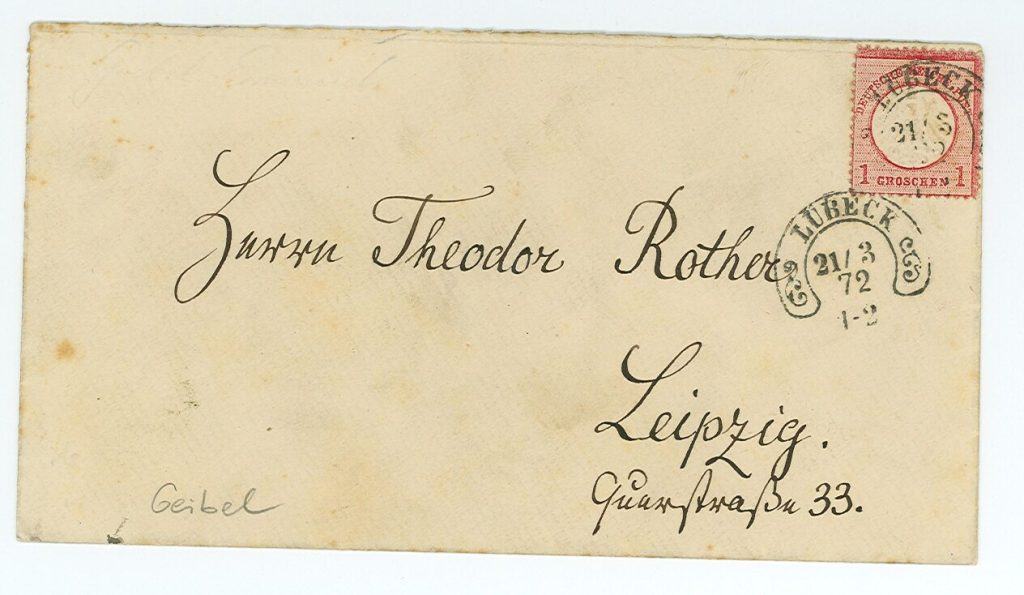 DEUTSCHE REICHS-POST
LÜBECK
21/3
1 GROSCHEN 1
LÜBECK
21/3
72
1-2
Herrn Theodor Rother
Leipzig.
Querstraße 33.
Geibel